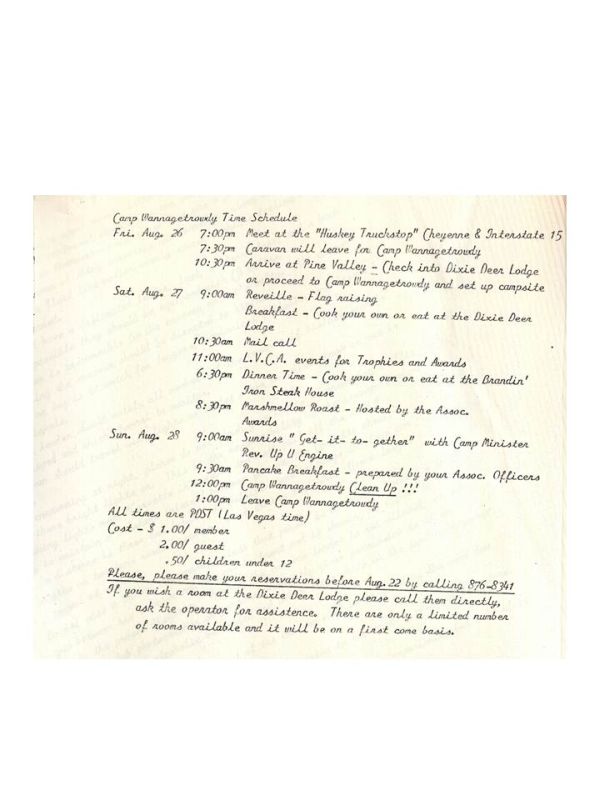 Camp Wannagetrowdy Time Schedule
Fri. Aug. 26 7:00pm Meet at the "Huskey Truckstop" Cheyenne & Interstate 15
7:30pm Caravan will leave for Camp Wannagetrowdy
10:30pm Arrive at Pine Valley - Check into Dixie Deer Lodge
or proceed to Camp Wannagetrowdy and set up campsite
Sat. Aug. 27 9:00am Reveille - Flag raising
Breakfast - Cook your own or eat at the Dixie Deer
Lodge
10:30am Mail call
11:00am L.V.C.A. events for Trophies and Awards
6:30pm Dinner Time - Cook your own or eat at the Brandin'
Iron Steak House
8:30pm Marshmellow Roast - Hosted by the Assoc.
Awards
Sun. Aug. 28 9:00am Sunrise " Get- it- to- gether" with Camp Minister
Rev. Up U Engine
9:30am Pancake Breakfast - prepared by your Assoc. Officers
12:00pm Camp Wannagetrowdy Clean Up !!!
1:00pm Leave Camp Wannagetrowdy
All times are PDST (Las Vegas time)
Cost - $ 1.00/ member
2.00/ guest
.50/ children under 12
Please, please make your reservations before Aug. 22 by calling 876-8341
If you wish a room at the Dixie Deer Lodge please call them directly,
ask the operator for assistence. There are only a limited number
of rooms available and it will be on a first come basis.